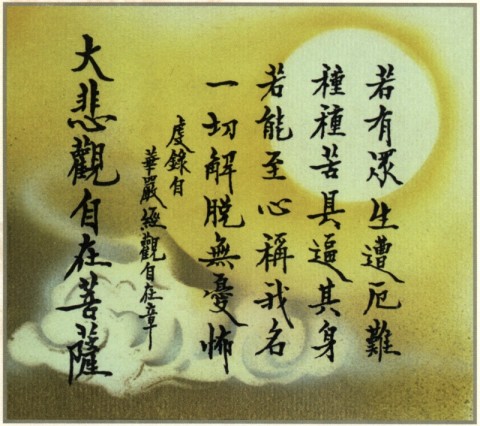 若有眾生遭厄難
種種苦具逼其身
若能至心稱我名
一切解脫無憂怖
虔錄自
華嚴經觀自在章
大悲觀自在菩薩